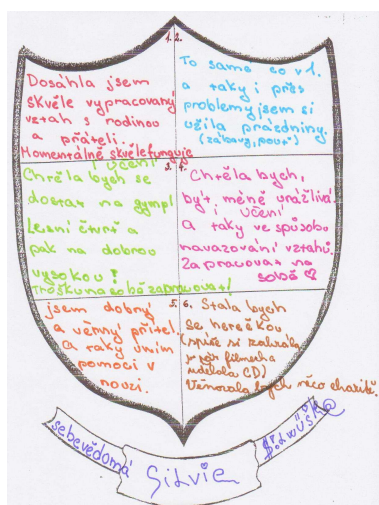 1. 2.
Dosáhla jsem
skvěle vypracovaný
vztah s rodinou
a přáteli.
Momentálně skvěle funguje
učení
To samé co v 1.
a taky i přes
problémy jsem si
užila prázdniny.
(zábavy, pouť)
3. 4.
Chtěla bych se
dostat na gympl
Lesní čtvrť a
pak na dobrou
vysokou!
Trošku na sobě zapracovat!
Chtěla bych,
být méně urážlivá
učení
a taky ve způsobu
navazování vztahů.
Zapracovat na
sobě ♡
5. 6.
jsem dobrý
a věrný přítel.
a taky umím
pomoci v
nouzi.
Stala bych
se herečkou
(spíše si zahrála
v pár filmech a
udělala CD)
Věnovala bych něco charitě.
sebevědomá
Silvie